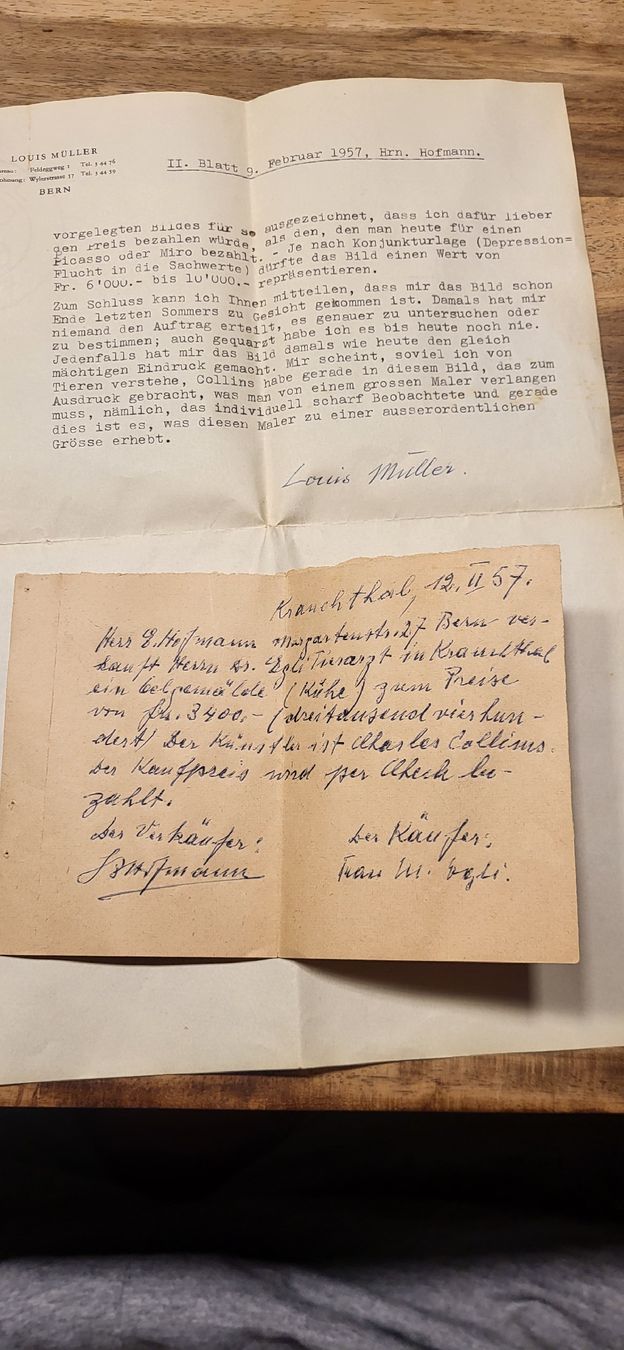 LOUIS MÜLLER
Feldeggweg 1 Tel. 3 44 76
Wylerstrasse 17 Tel. 3 44 39
BERN
II. Blatt 9. Februar 1957, Hrn. Hofmann.
vorgelegten Bildes für so ausgezeichnet, dass ich dafür lieber
den Preis bezahlen würde, als den, den man heute für einen
Picasso oder Miro bezahlt. - Je nach Konjunkturlage (Depression=
Flucht in die Sachwerte) dürfte das Bild einen Wert von
Fr. 6'000.- bis 10'000.- repräsentieren.
Zum Schluss kann ich Ihnen mitteilen, dass mir das Bild schon
Ende letzten Sommers zu Gesicht gekommen ist. Damals hat mir
niemand den Auftrag erteilt, es genauer zu untersuchen oder
zu bestimmen; auch gequarzt habe ich es bis heute noch nie.
Jedenfalls hat mir das Bild damals wie heute den gleich
mächtigen Eindruck gemacht. Mir scheint, soviel ich von
Tieren verstehe, Collins habe gerade in diesem Bild, das zum
Ausdruck gebracht, was man von einem grossen Maler verlangen
muss, nämlich, das individuell scharf Beobachtete und gerade
dies ist es, was diesen Maler zu einer ausserordentlichen
Grösse erhebt.
Louis Müller.
Krauchthal, 12. II 57.
Herr E. Hofmann Morgartenstr. 27 Bern ver-
kauft Herrn Dr. Egli Tierarzt in Krauchthal
ein Oelgemälde (Kühe) zum Preise
von Frs. 3400.- (dreitausendvierhun-
dert) Der Künstler ist Charles Collins.
Der Kaufpreis wird per Check be-
zahlt.
Der Verkäufer: Der Käufer:
Hofmann Frau M. Egli.